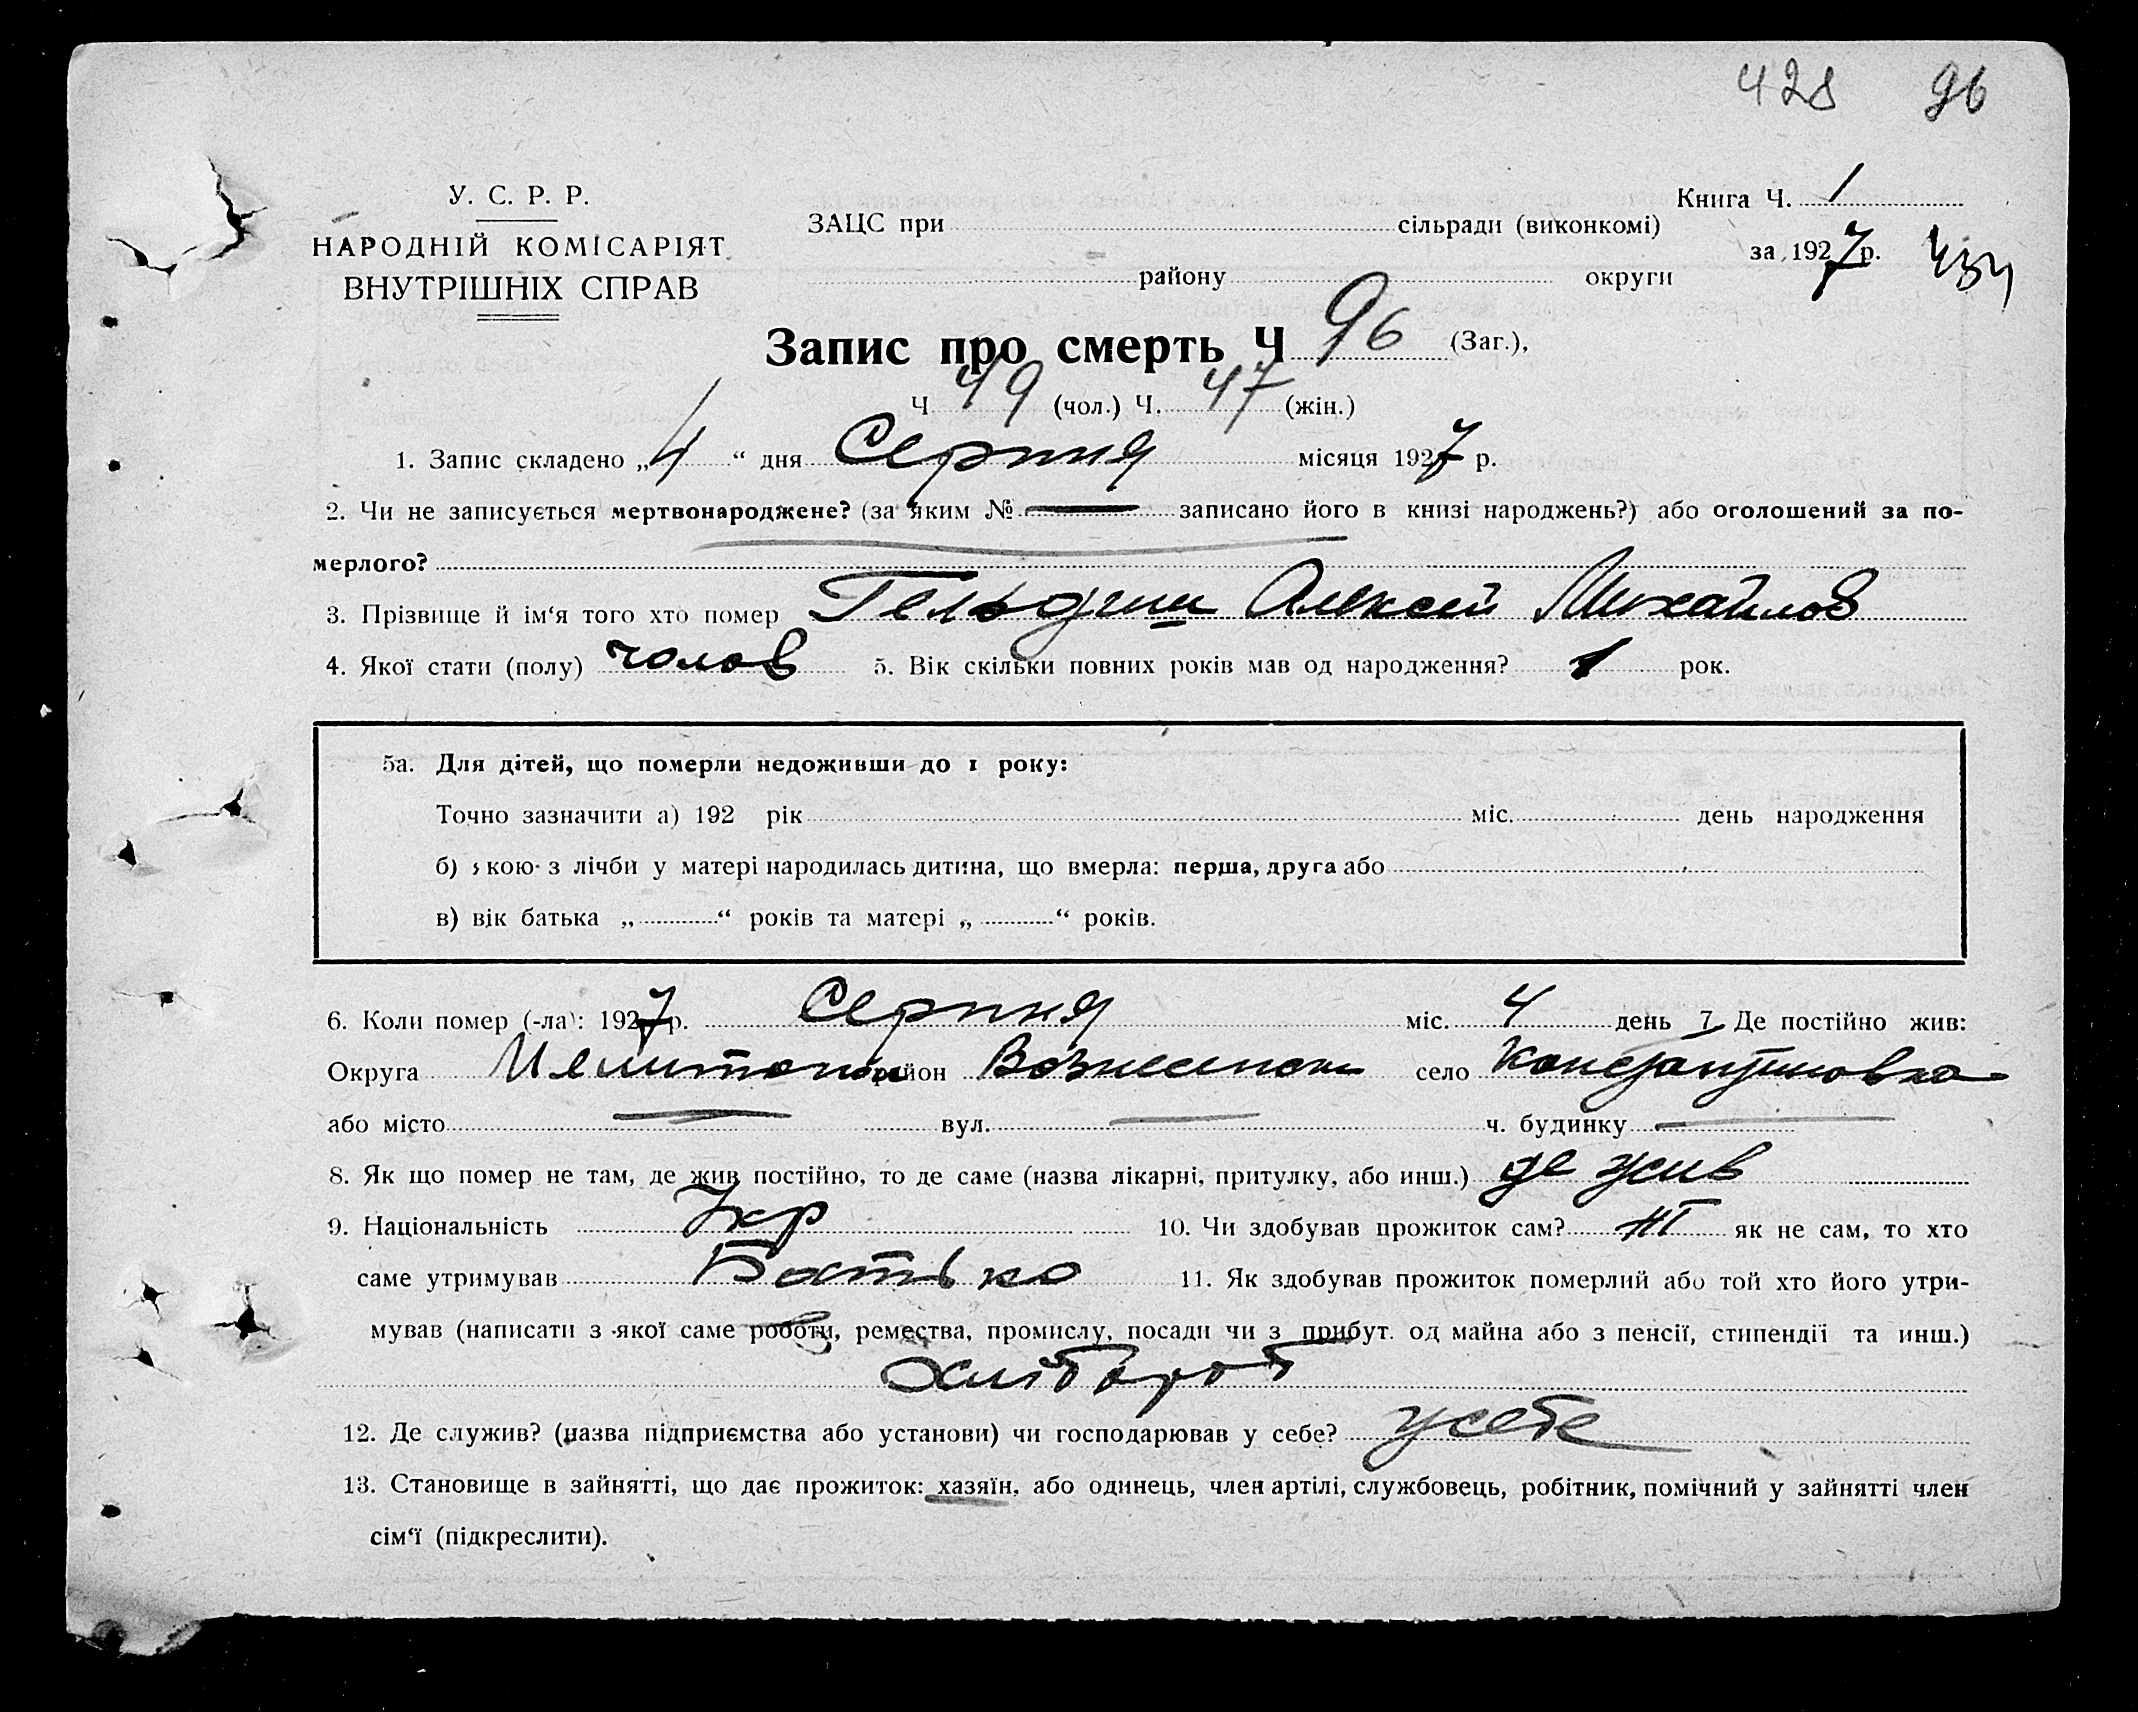 428 96
У. С. Р. Р.
НАРОДНІЙ КОМІСАРІЯТ
ВНУТРІШНІХ СПРАВ
Книга Ч. 1
ЗАЦС при сільради (виконкомі)
за 1927 р.
району округи
Запис про смерть Ч 96 (Заг.),
Ч 49 (чол.) Ч. 47 (жін.)
1. Запис складено „4“ дня Серпня місяця 1927 р.
2. Чи не записується мертвонароджене? (за яким № записано його в книзі народжень?) або оголошений за по-
мерлого?
3. Прізвище й ім‘я того хто помер Алексей Михайлов
4. Якої стати (полу) чолов 5. Вік скільки повних років мав од народження? 1 рок.
5а. Для дітей, що померли недоживши до 1 року:
Точно зазначити а) 192 рік міс. день народження
б) якою з лічби у матері народилась дитина, що вмерла: перша, друга або
в) вік батька „ “ років та матері „ “ років.
6. Коли помер (-ла): 1927 р. Серпня міс. 4 день 7. Де постійно жив:
Округа Мелитопол район Вознесенск село Константиновка
або місто вул. ч. будинку
8. Як що помер не там, де жив постійно, то де саме (назва лікарні, притулку, або инш.) де жив
9. Національність Укр 10. Чи здобував прожиток сам? Ні як не сам, то хто
саме утримував Батько 11. Як здобував прожиток померлий або той хто його утри-
мував (написати з якої саме роботи, ремества, промислу, посади чи з прибут. од майна або з пенсії, стипендії та инш.)
Хлібороб
12. Де служив? (назва підприємства або установи) чи господарював у себе? у себе
13. Становище в зайнятті, що дає прожиток: хазяїн, або одинець, член артілі, службовець, робітник, помічний у зайнятті член
сім‘ї (підкреслити).